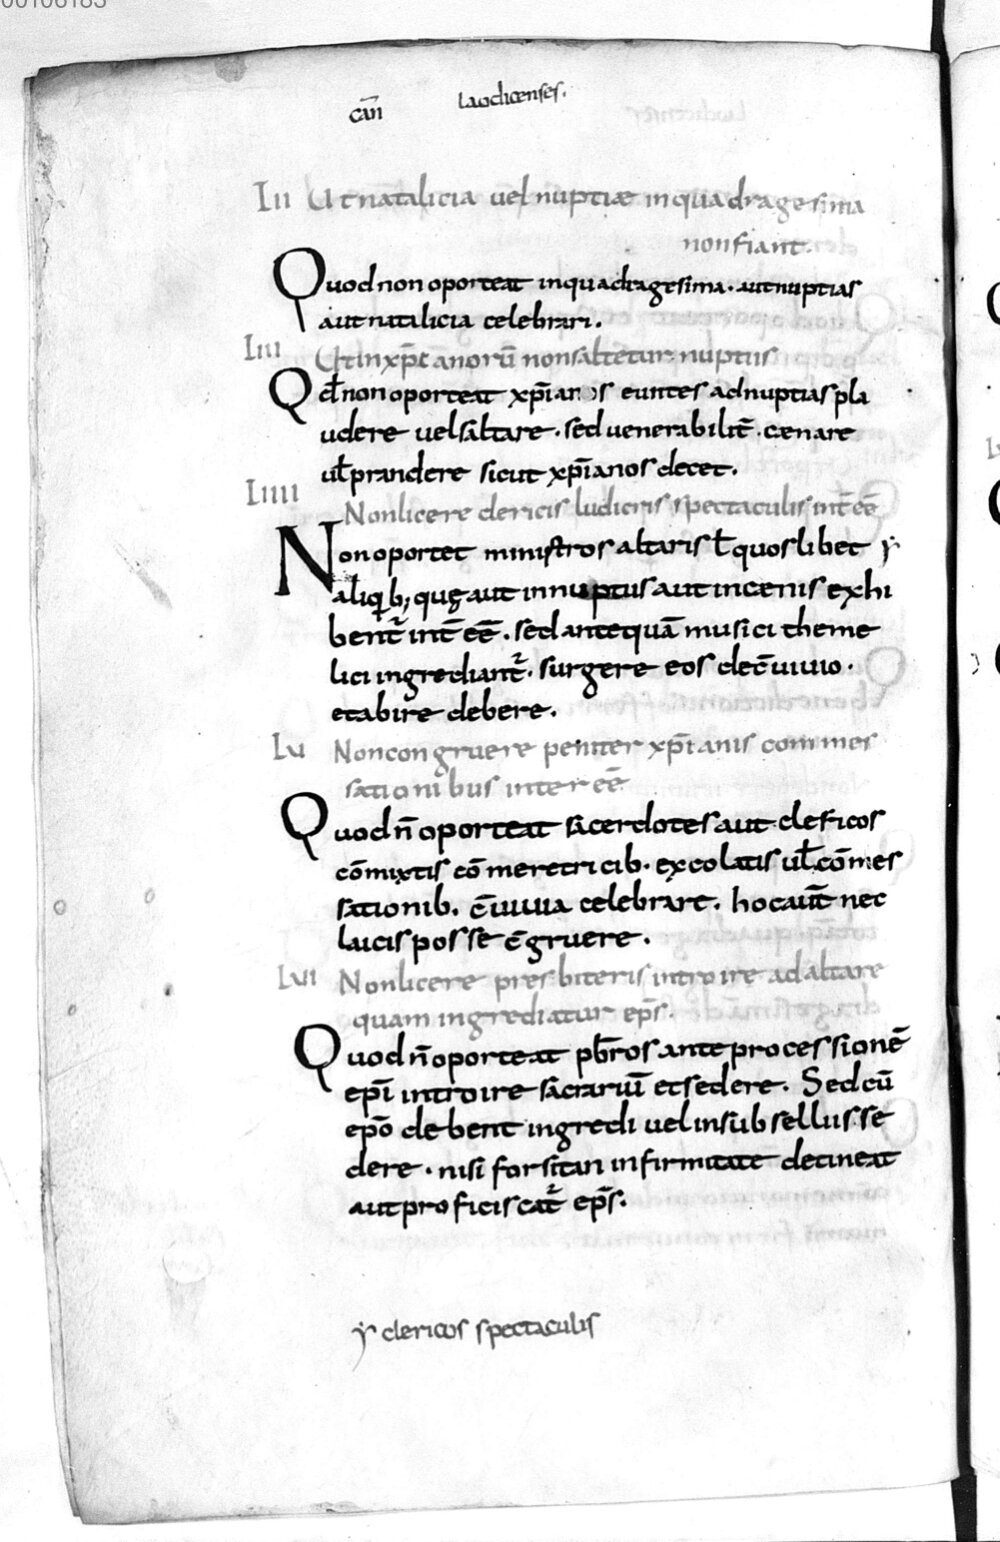 cãn laodicenses.
LII Ut natalicia uel nuptiæ in quadragesima
non fiant.
Quod non oporteat in quadragesima. aut nuptias
aut natalicia celebrari.
LIII Ut in xp̃ianorũ non saltetur nuptiis
Qđ non oporteat xp̃ianos euntes ad nuptias pla
udere uel saltare. sed uenerabilit̃. cænare
uł prandere sicut xp̃ianos decet.
LIIII Non licere clericis ludicris spectaculis int̃ eẽ
Non oportet ministros altaris ł quoslibet
aliq b; quę aut in nuptus aut in cænis exhi
bent̃ int̃ eẽ. sed antequã musici theme
lici ingrediant̃. surgere eos de c̃uiuio.
et abire debere.
LV Non congruere peniter xp̃ianis commes
sationibus inter eẽ
Quod ñ oporteat sacerdotes aut clericos
cõmixtis cõmeretricib. ex colatis uł cõmes
sationib. c̃uiuia celebrare. hoc aut̃ nec
laicis posse c̃gruere.
LVI Non licere presbiteris introire ad altare
quam ingrediatur ep̃s.
Quod ñ oporteat pb̃ros ante processionẽ
ep̃i introire sacrariũ et sedere. Sed cũ
ep̃o debent ingredi uel in subselliis se
dere. nisi forsitan infirmitate detineat
aut proficiscat̃ ep̃s.
clericos spectaculis